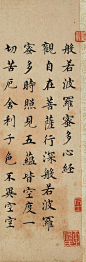 般若波羅蜜多心經
觀自在菩薩行深般若波羅
蜜多時照見五蘊皆空度一
切苦厄舍利子色不異空空